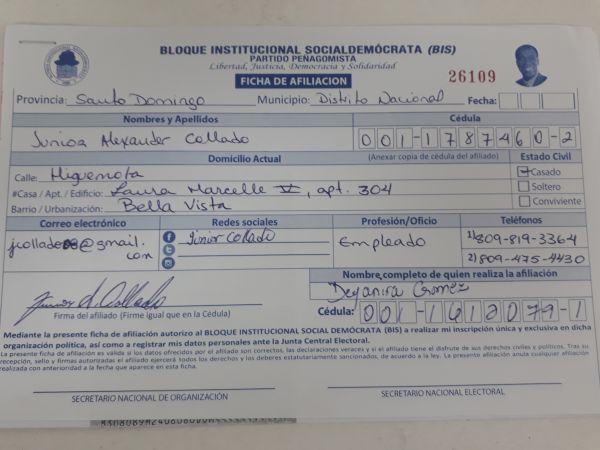 BLOQUE INSTITUCIONAL SOCIALDEMÓCRATA (BIS)
PARTIDO PENAGOMISTA
Libertad, Justicia, Democracia y Solidaridad
FICHA DE AFILIACION
26109
Provincia: Santo Domingo Municipio: Distrito Nacional Fecha:
Nombres y Apellidos Cédula
Junior Alexander Collado 001-1787460-2
Domicilio Actual (Anexar copia de cédula del afiliado) Estado Civil
Calle: Higuemota Casado
#Casa / Apt. / Edificio: Laura Marcelle V, apt. 304 Soltero
Barrio / Urbanización: Bella Vista Conviviente
Correo electrónico Redes sociales Profesión/Oficio Teléfonos
@gmail.com Junior Collado Empleado 1) 809-819-3364
2) 809-475-4430
Nombre completo de quien realiza la afiliación
Deyanira Gomez
Junior A. Collado
Firma del afiliado (Firme igual que en la Cédula) Cédula: 001-1612079-1
Mediante la presente ficha de afiliación autorizo al BLOQUE INSTITUCIONAL SOCIAL DEMÓCRATA (BIS) a realizar mi inscripción única y exclusiva en dicha
organización política, así como a registrar mis datos personales ante la Junta Central Electoral.
La presente ficha de afiliación es válida si los datos ofrecidos por el afiliado son correctos, las declaraciones veraces y si el afiliado tiene el disfrute de sus derechos civiles y políticos. Tras su
recepción, sello y firmas autorizadas el afiliado ejercerá todos los derechos y los deberes estatutariamente sancionados, de acuerdo a la ley. La presente afiliación anula cualquier afiliación
realizada con anterioridad a la fecha que aparece en esta ficha.
SECRETARIO NACIONAL DE ORGANIZACIÓN SECRETARIO NACIONAL ELECTORAL